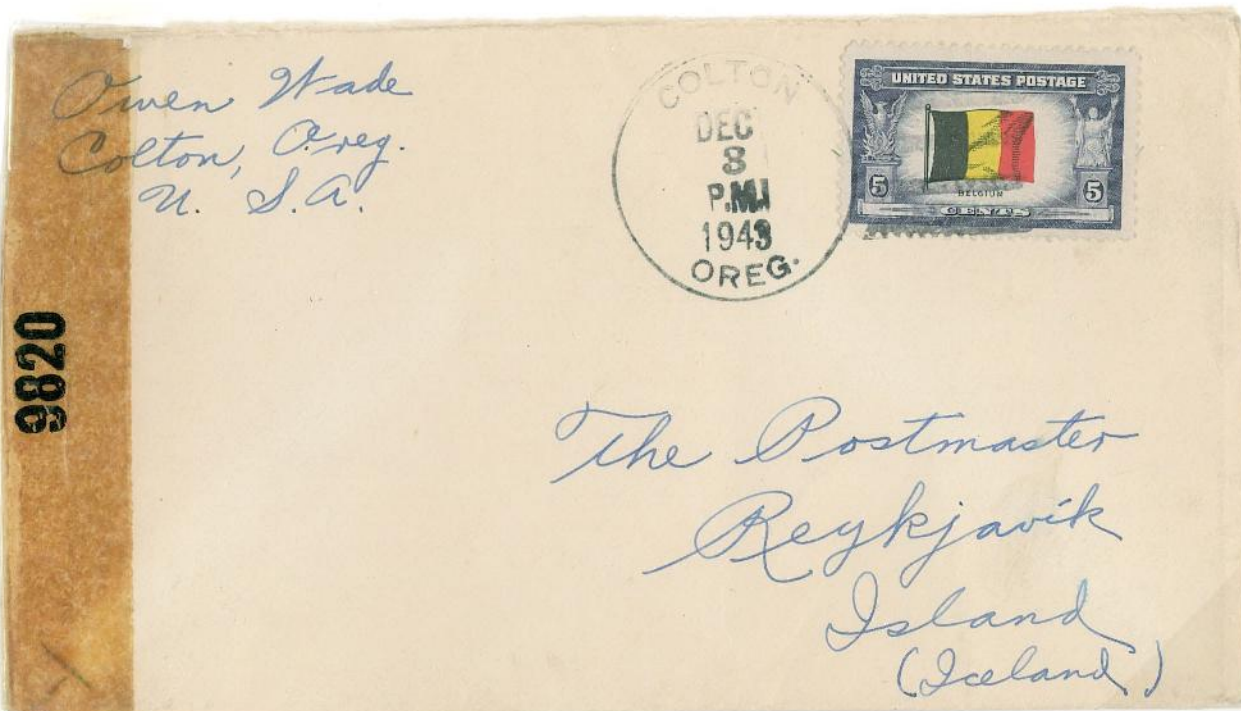 Owen Wade
Colton, Oreg.
U. S. A.
COLTON
DEC
8
P.M.
1943
OREG.
UNITED STATES POSTAGE
BELGIUM
5 5
CENTS
9820
The Postmaster
Reykjavik
Island
(Iceland)